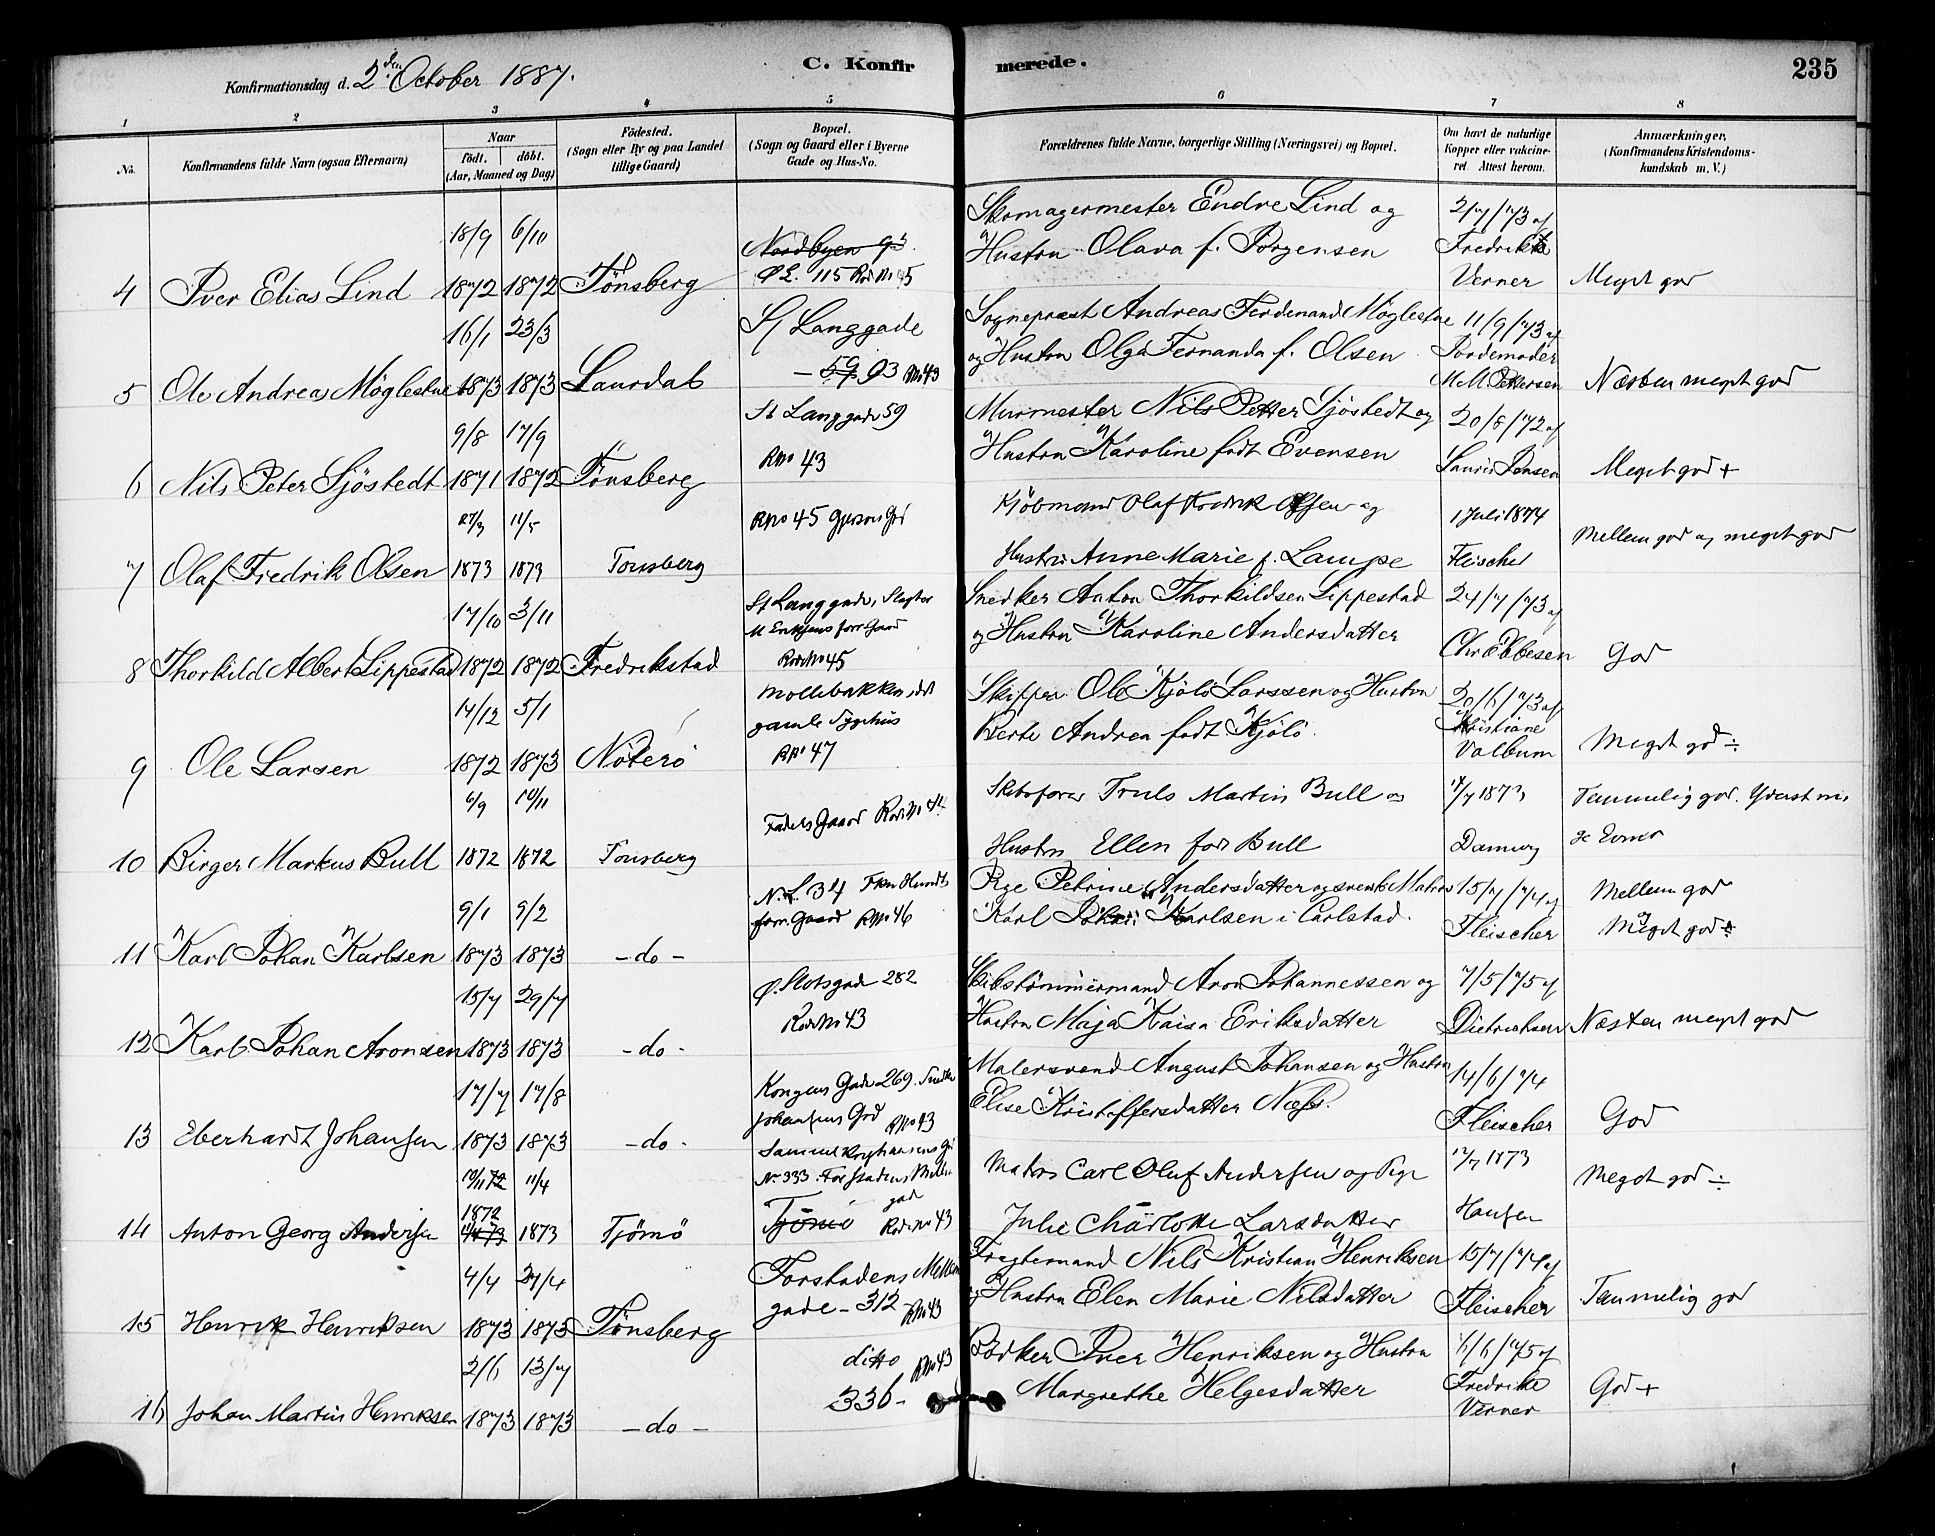 Konfirmationsdag d. 2den October 1887.
C. Konfirmerede.
235
1 2 3 4 5 6 7 8
No.
Konfirmandens fulde Navn (ogsaa Efternavn)
Naar
födt. döbt.
(Aar, Maaned og Dag)
Födested.
(Sogn eller By og paa Landet
tillige Gaard)
Bopæl.
(Sogn og Gaard eller i Byerne
Gade og Hus-No.
Forældrenes fulde Navne, borgerlige Stilling (Næringsvei) og Bopæl.
Om havt de naturlige
Kopper eller vakcine-
ret. Attest herom.
Anmærkninger.
(Konfirmandens Kristendoms-
kundskab m. V.)
18/9 6/10
Nordbyen 93.
Ø L. 115 Rode No 45
Skomagermester Endre Lind og
Hustru Olava f. Jörgensen
2/7/73 af
Fredrikke
Verner
4 Iver Elias Lind 1872 1872 Tönsberg
Meget god
16/1 23/3
St Langgade
93 RNo 43
Sogneprest Andreas Ferdinand Möglestue
og Hustru Olga Fernanda f. Olsen
11/9/73 af
Jordemoder
M M Pettersen
5 Ole Andreas Möglestue 1873 1873 Laurdal
Næsten meget god
9/8 17/9
St Langgade 59
RNo 43
Murmester Nils Petter Sjöstedt og
Hustru Karoline født Evensen
20/8/72 af
Lauris Jensen
6 Nils Peter Sjöstedt 1871 1872 Tönsberg
Meget god +
27/3 11/5
RNo 45
Kjöbmand Olaf Fredrik Olsen og
Hustru Anne Marie f. Lampe
1 Juli 1874
Fleischer
7 Olaf Fredrik Olsen 1873 1873 Tonsberg
Mellem god og meget god
17/10 3/11
St Langgade, Slagter
Rode No 45
Snedker Anton Thorkildsen Lippestad
og Hustru Karoline Andersdatter
24/7/73 af
Chr Ebbesen
8 Thorkild Albert Lippestad 1872 1872 Fredrikstad
God
14/12 5/1
Möllebakken
gamle Sygehus
RNo 47
Skipper Ole Kjölö Larssen og Hustru
Berte Andrea født Kjölö.
20/6/73 af
Kristiane
Valbum
9 Ole Larsen 1872 1873 Nöterö
Meget god ÷
6/9 10/11
Skibsfører Truls Martin Bull og
Hustru Ellen fød Bull
1873
10 Birger Markus Bull 1872 1872 Tonsberg
Temmelig god.
9/1 9/2
N. L. 34
forr. Gaard RNo 46
Pige Petrine Andersdatter og svensk Matros
Karl Johan Karlsen i Carlstad.
15/7/74 af
Fleischer
11 Karl Johan Karlsen 1873 1873 -do-
Mellem god
Meget god
15/7 29/7
Ø. Slotsgade 282
Rode No 43
Skibstömmermand Aron Johannessen og
Hustru Maja Kaisa Eriksdatter
7/5/75 af
Dietrichsen
12 Karl Johan Aronsen 1873 1873 -do-
Næsten meget god
17/7 17/8
Kongens Gade 269. Snedker
Johansens Grd RNo 43
Malersvend August Johansen og Hustru
Elise Kristoffersdatter Næss.
14/6/74
Fleischer
13 Eberhardt Johansen 1873 1873 -do-
God
10/11 72 11/4
No 333. Forstadens Mellem
gad
Tjömö Rode No 43
Matros Carl Oluf Andersen og Pige
Julie Charlotte Larsdatter
12/7 1873
Hansen
1872
14 Anton Georg Andersen 1873 Tjömö
Meget god ÷
4/4 24/4
Forstadens Mellem
gade - 312 - RNo 43
Fragtemand Nils Kristian Henriksen
og Hustru Elen Marie Nilsdatter
15/7/74 af
Fleischer
15 Henrik Henriksen 1873 1873 Tönsberg
Temmelig god
2/6 13/7
ditto RNo 43
336 -
Bödker Iver Henriksen og Hustru
Margrethe Helgesdatter
11/6/75 af
Fredrike
Verner
16 Johan Martin Henriksen 1873 1873 -do-
God +